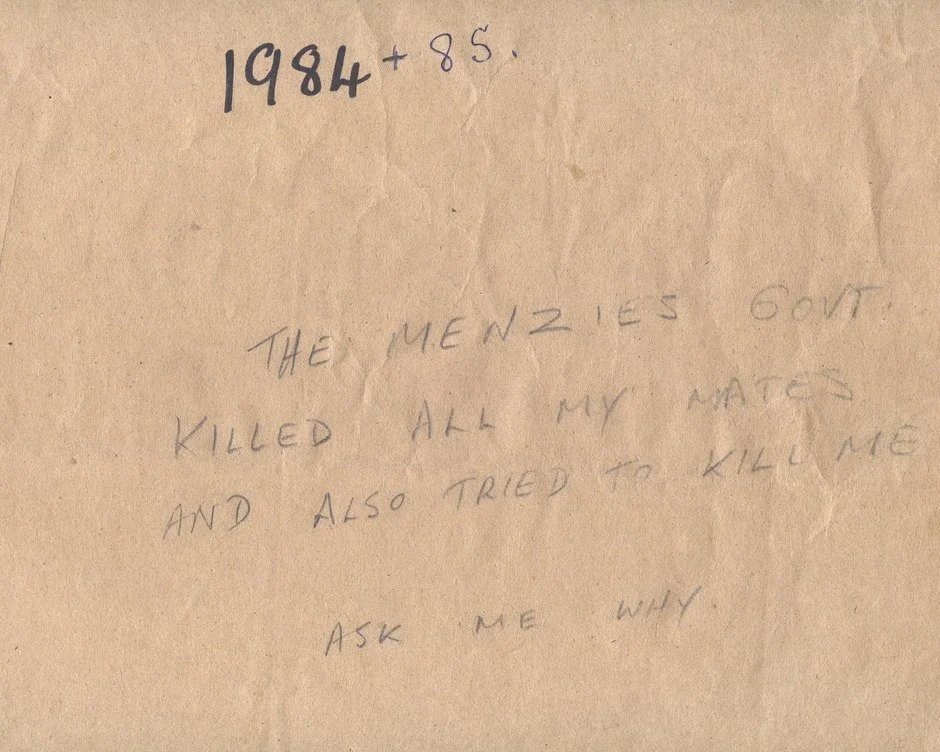 1984 + 85.
THE MENZIES GOVT.
KILLED ALL MY MATES
AND ALSO TRIED TO KILL ME
ASK ME WHY.